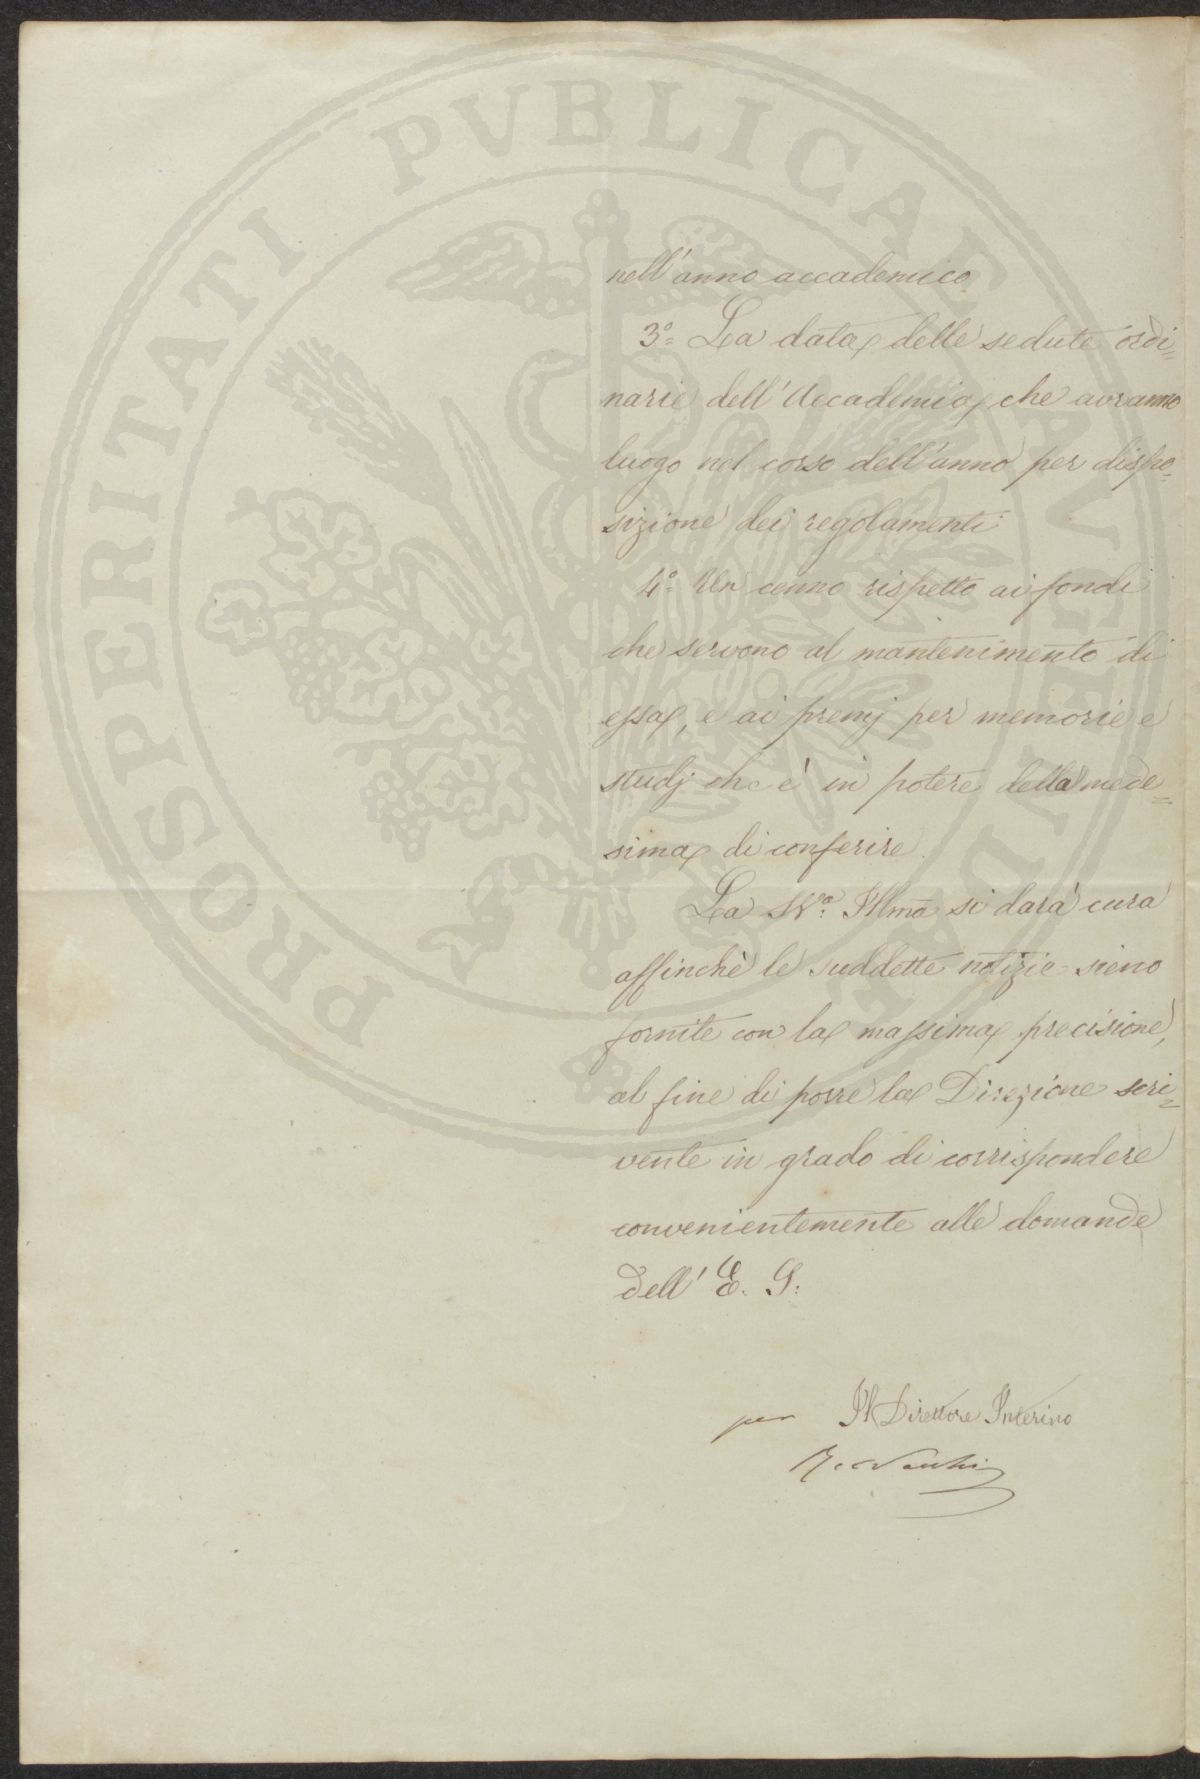 PROSPERITATI PVBLICAE AVGENDAE
nell'anno accademico
3.º La data delle sedute ordi=
narie dell'Accademia, che avranno
luogo nel corso dell'anno per dispo=
sizione dei regolamenti
4.º Un cenno rispetto ai fondi
che servono al mantenimento di
essa, e ai premj per memorie e
studj che è in potere della mede=
sima di conferire.
La Illma si darà cura
affinchè le suddette notizie sieno
fornite con la massima precisione,
al fine di porre la Direzione scri=
vente in grado di corrispondere
convenientemente alle domande
dell' E. S:
per Il Direttore Interino